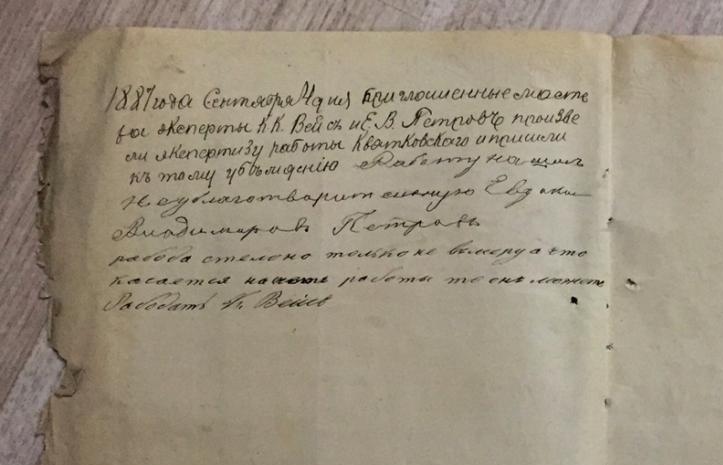 1887 года Сентября 4 дня приглошисенные масте
ра эксперты К К. Вейсъ и Е. В. Петровъ произве
ли экспертизу работы Квятковского и пришли
къ тому убеждению Работу нашли
неублаготварительную
Владимировъ Петровъ
рабода стелоно только не вымеру а что
касается работы то онъ можетъ
Рабодать К. Вейсъ